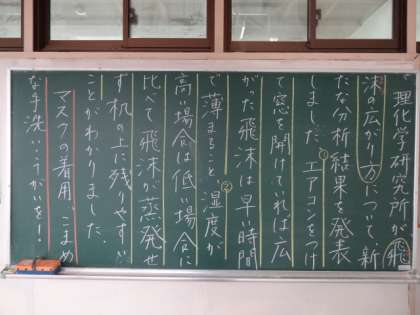 理化学研究所が飛
沫の広がり方について新
たな分析結果を発表
しました。①エアコンをつけ
て窓を開けていれば広
がった飛沫は早い時間
で薄まること ②湿度が
高い場合は低い場合に
比べて飛沫が蒸発せ
ず机の上に残りやすい
ことがわかりました。
マスクの着用、こまめ
な手洗いうがいを！